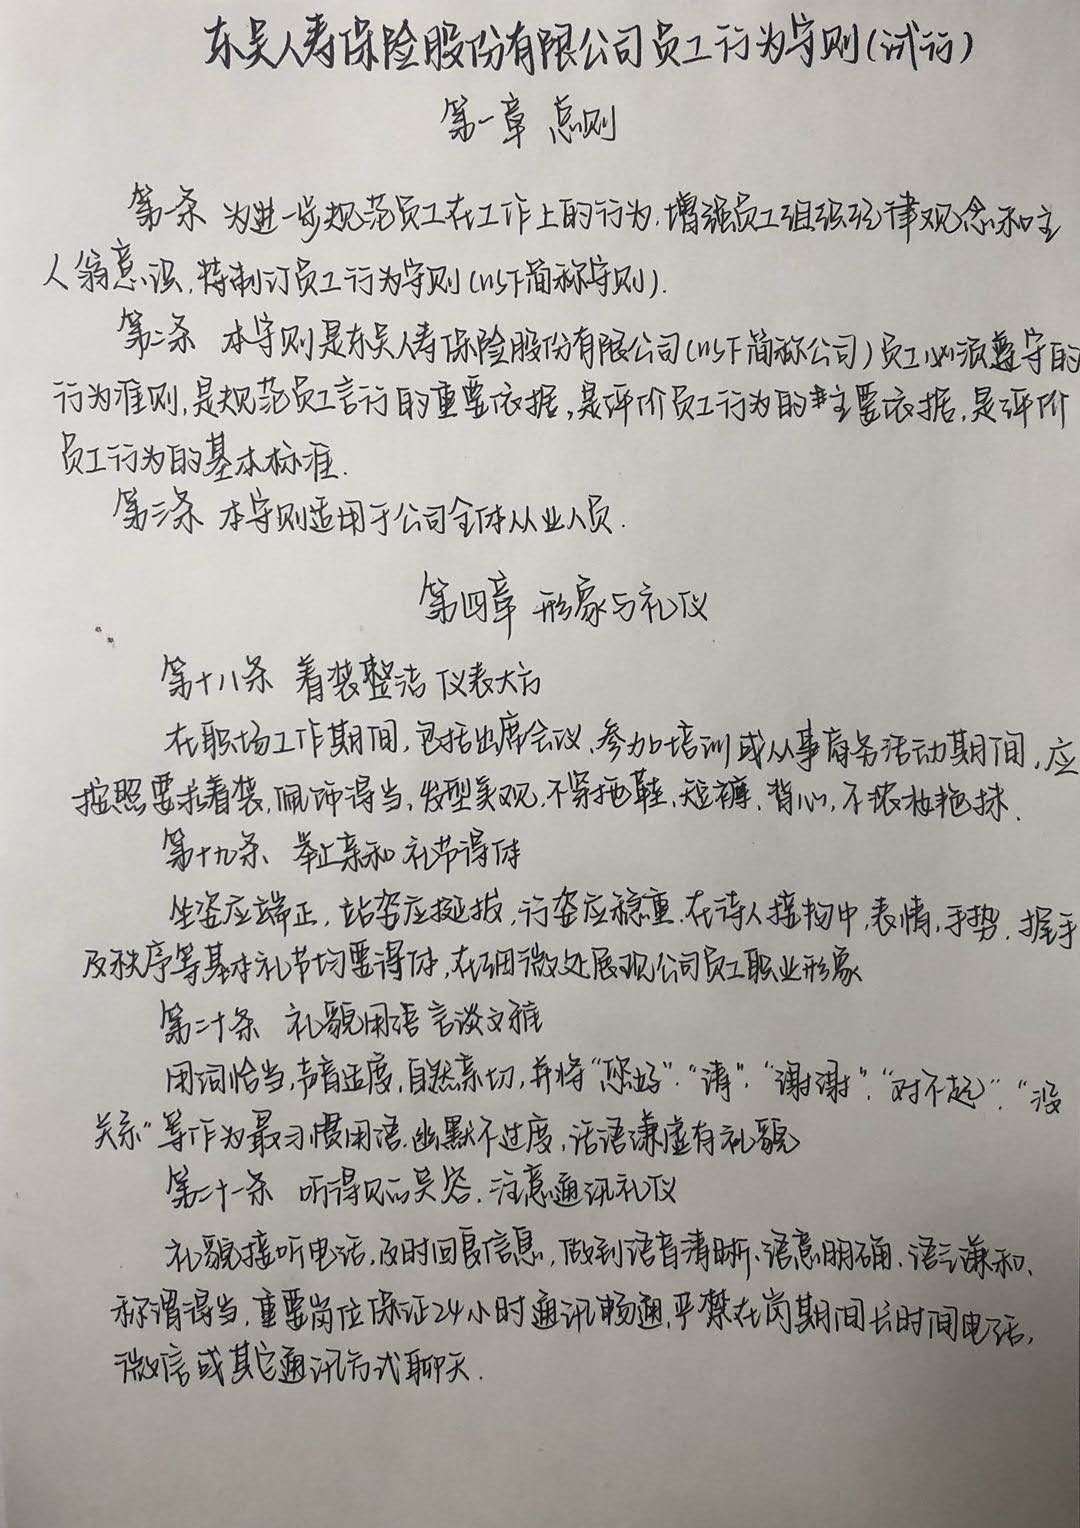 东吴人寿保险股份有限公司员工行为守则(试行)
第一章 总则
第一条 为进一步规范员工在工作上的行为,增强员工组织纪律观念和主
人翁意识,特制订员工行为守则(以下简称守则).
第二条 本守则是东吴人寿保险股份有限公司(以下简称公司)员工必须遵守的
行为准则,是规范员工言行的重要依据,是评价员工行为的主要依据,是评价
员工行为的基本标准.
第三条 本守则适用于公司全体从业人员.
第四章 形象与礼仪
第十八条 着装整洁 仪表大方
在职场工作期间,包括出席会议、参加培训或从事商务活动期间,应
按照要求着装,佩饰得当,发型美观,不穿拖鞋、短裤、背心,不浓妆艳抹.
第十九条、举止亲和 礼节得体
坐姿应端正,站姿应挺拔,行姿应稳重.在待人接物中,表情,手势,握手
及秩序等基本礼节均要得体,在细微处展现公司员工职业形象
第二十条 礼貌用语 言谈文雅
用词恰当,声音适度,自然亲切,并将“您好”.“请”.“谢谢”.“对不起”.“没
关系”等作为最习惯用语.幽默不过度,话语谦虚有礼貌
第二十一条 听得见的笑容.注意通讯礼仪
礼貌接听电话,及时回复信息,做到语音清晰、语意明确、语气谦和、
称谓得当.重要岗位保证24小时通讯畅通,严禁在岗期间长时间电话,
微信或其它通讯方式聊天.